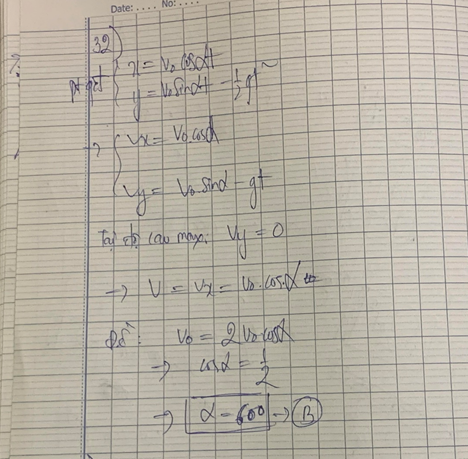 Date: .... No: ....
32)
pt qđ { x = v₀.cosαt
y = v₀sinαt - ½gt²
→ { Vx = V₀.cosα
Vy = V₀.sinα - gt
Tại độ cao max: Vy = 0
→ V = Vx = V₀.cosα
V₀ = 2V₀.cosα
→ cosα = ½
→ α = 60⁰ → B